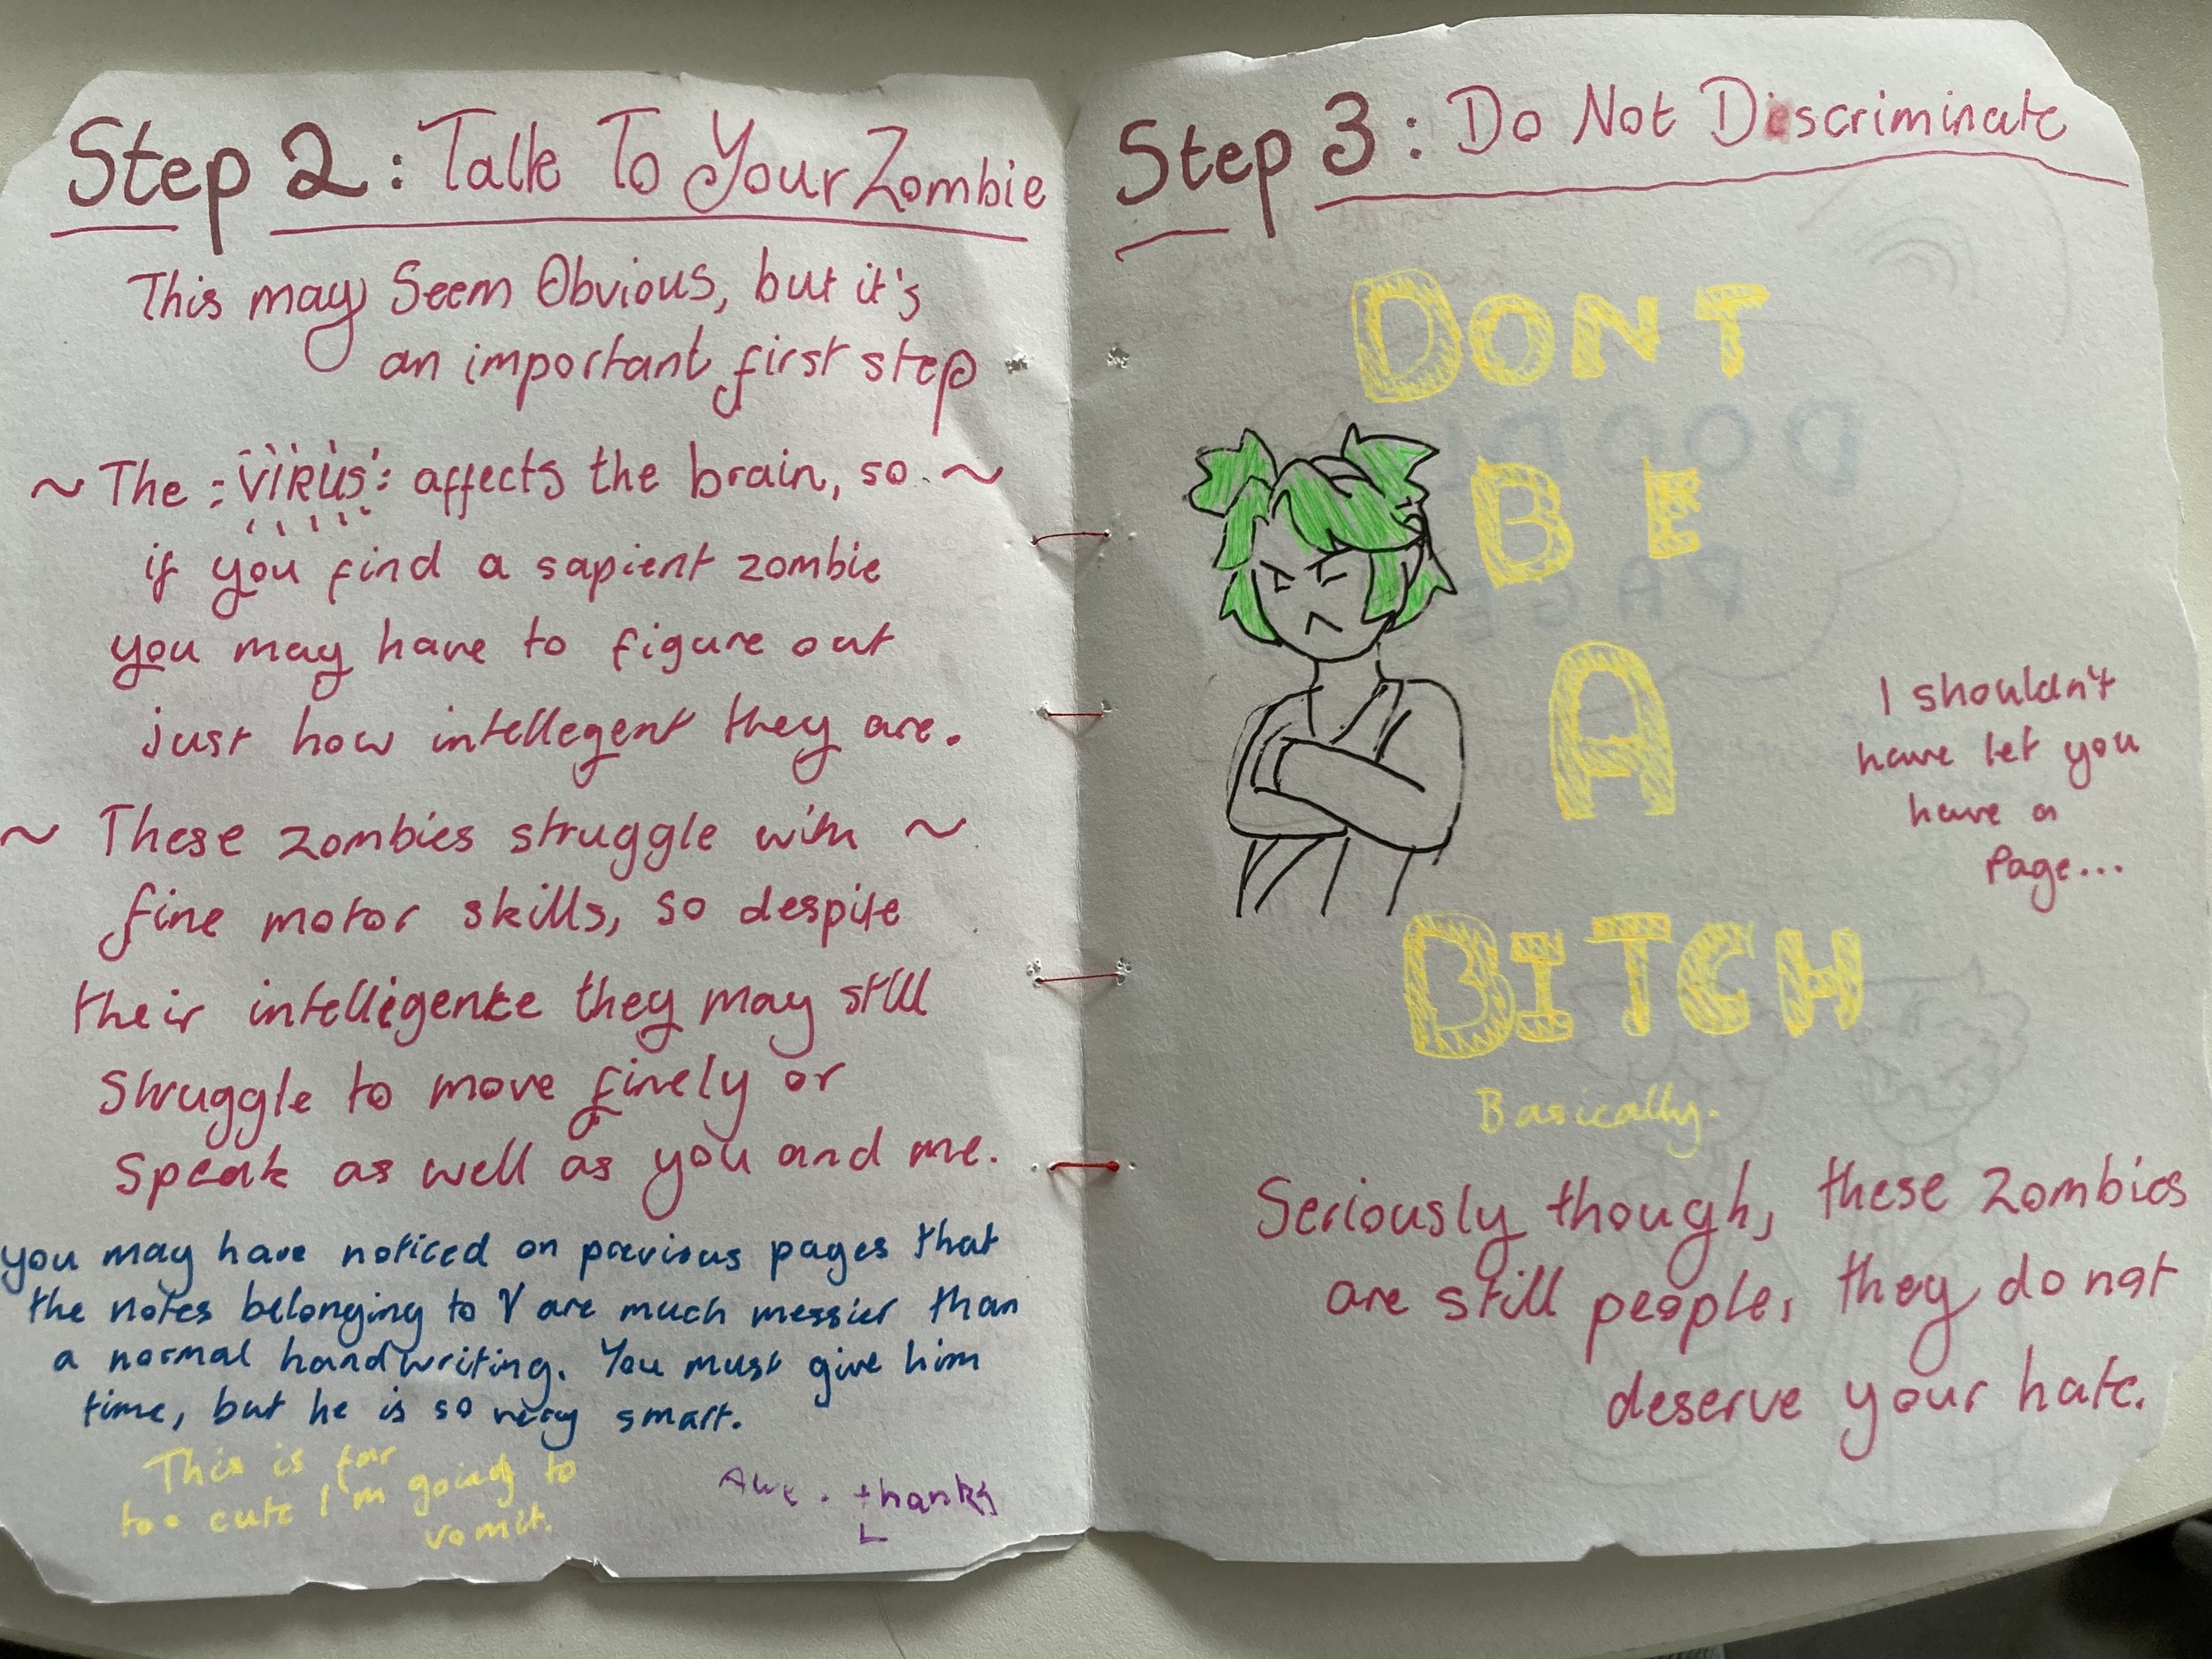 Step 2: Talk To Your Zombie
This may Seem Obvious, but it's
an important first step
~ The VIRUS affects the brain, so ~
if you find a sapient zombie
you may have to figure out
just how intellegent they are.
~ These zombies struggle with ~
fine motor skills, so despite
their intelligence they may still
struggle to move finely or
speak as well as you and me.
you may have noticed on previous pages that
the notes belonging to Y are much messier than
a normal handwriting. You must give him
time, but he is so very smart.
This is far
too cute I'm going to
vomit.
Awe. thanks
Step 3: Do Not Discriminate
DONT
BE
A
BITCH
Basically.
I shouldn't
have let you
have a
Page...
Seriously though, these zombies
are still people, they do not
deserve your hate.